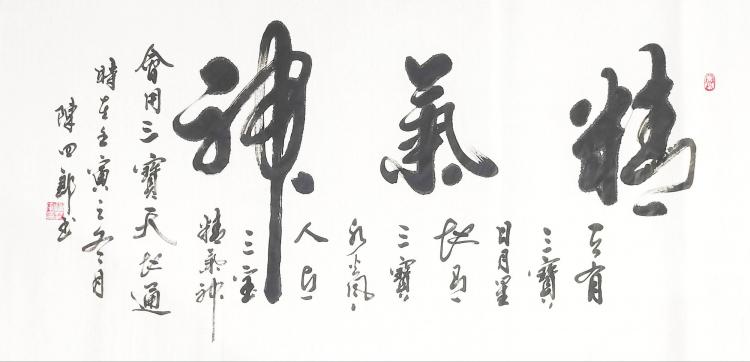 精氣神
天有
三寶
日月星
地有
三寶
水火風
人有
三寶
精氣神
會用三寶天地通
時在壬寅之冬月
陳四郎书